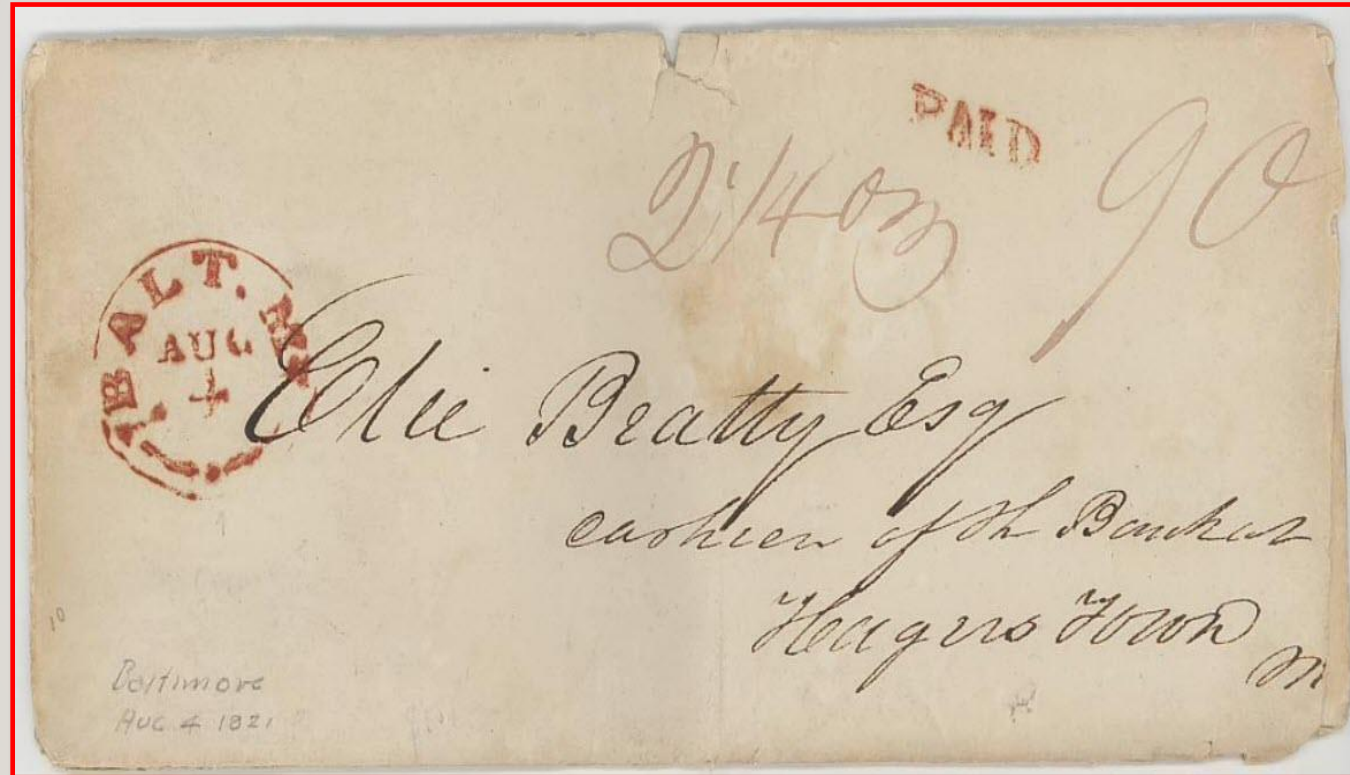 PAID
2 1/4 oz 90
BALT. Md
AUG
4
Elie Beatty Esq
cashier of th Bank at
Hagers Town
M
10
Baltimore
AUG 4 1821